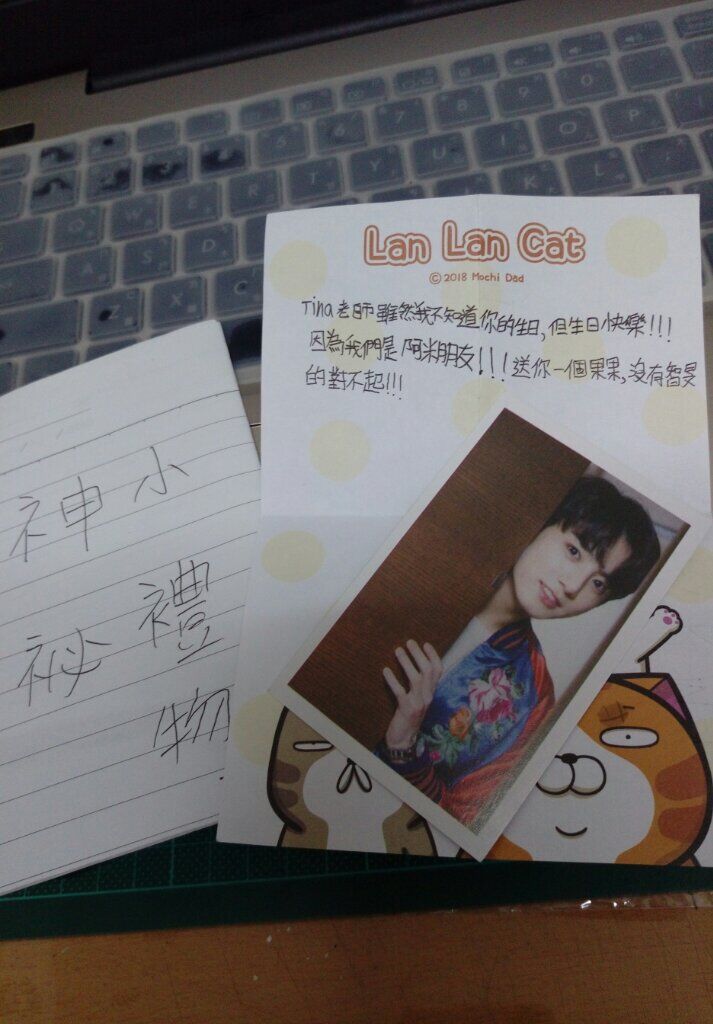 Lan Lan Cat
© 2018 Mochi Dad
Tina老師雖然我不知道你的生日,但生日快樂!!!
因為我們是阿米朋友!!!送你一個果果,沒有智旻
的對不起!!!
神祕
小禮物
6 7 8 9 0
Q W E R T Y U I O P
A S D K L
Z X